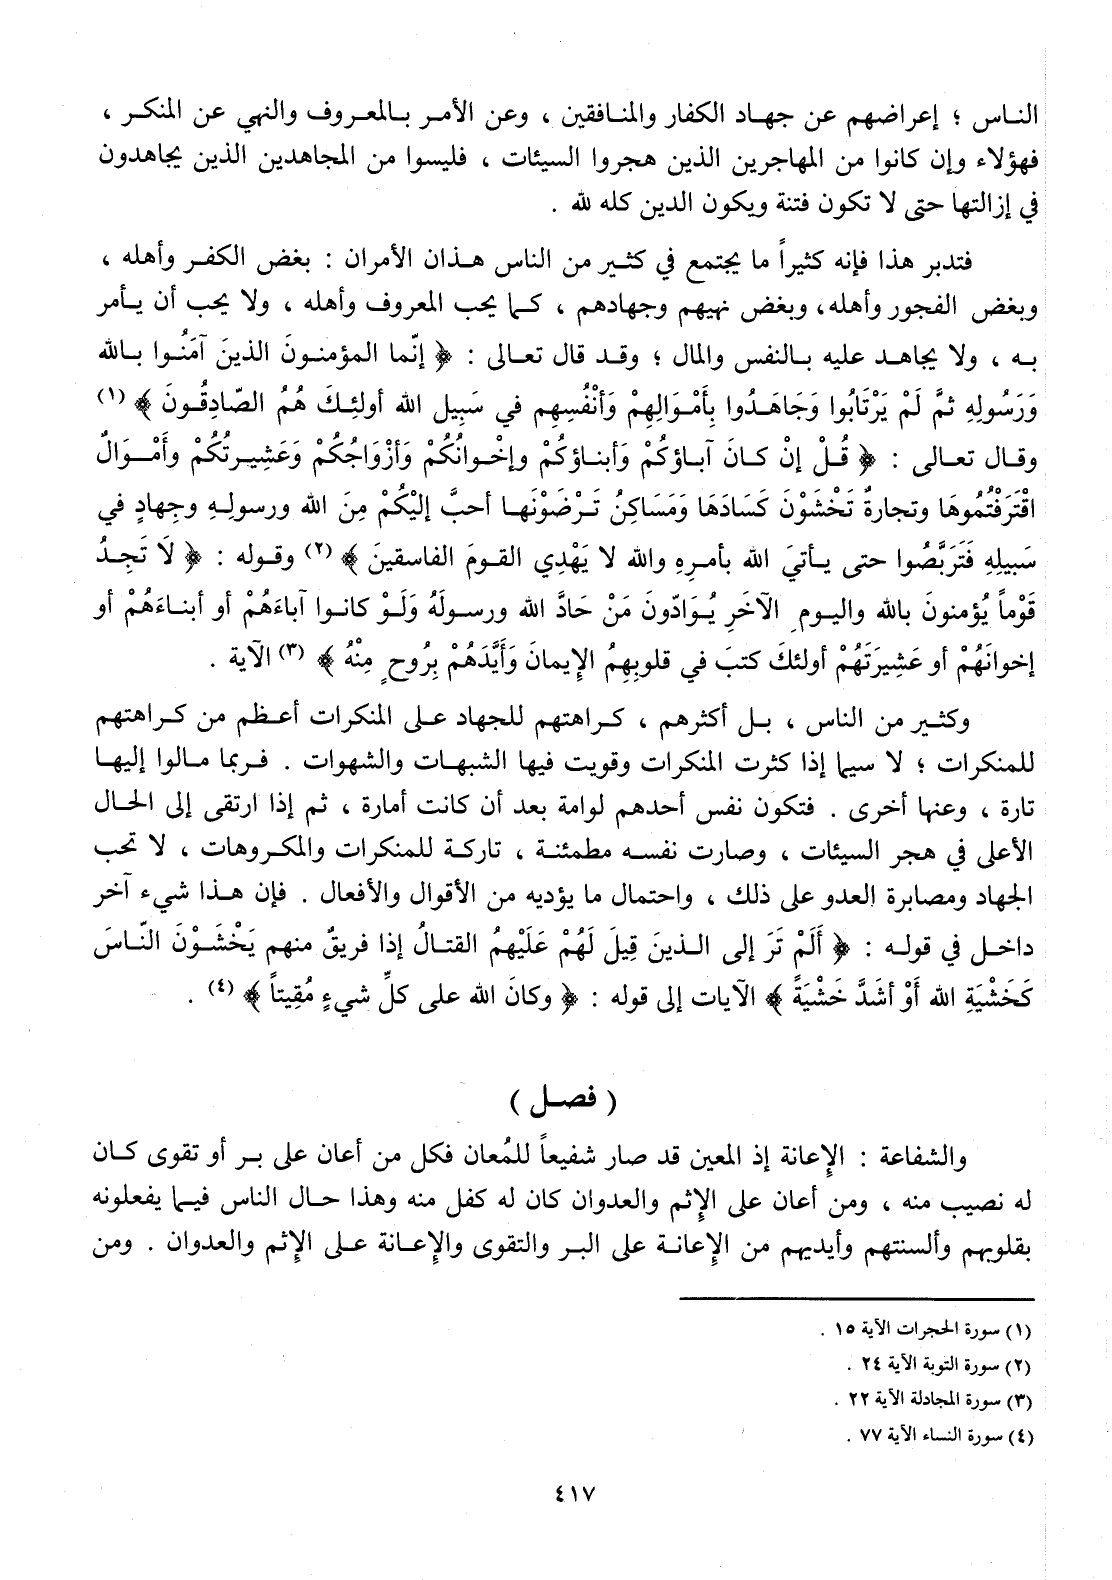 الناس ؛ إعراضهم عن جهاد الكفار والمنافقين ، وعن الأمر بالمعروف والنهي عن المنكر ،
فهؤلاء وإن كانوا من المهاجرين الذين هجروا السيئات ، فليسوا من المجاهدين الذين يجاهدون
في إزالتها حتى لا تكون فتنة ويكون الدين كله لله .
فتدبر هذا فإنه كثيراً ما يجتمع في كثير من الناس هذان الأمران : بغض الكفر وأهله ،
وبغض الفجور وأهله، وبغض نهيهم وجهادهم ، كما يحب المعروف وأهله ، ولا يحب أن يأمر
به ، ولا يجاهد عليه بالنفس والمال ؛ وقد قال تعالى : ﴿ إنّما المؤمنونَ الذينَ آمَنُوا بالله
وَرَسُولِهِ ثمَّ لَمْ يَرْتابُوا وَجَاهَدُوا بِأَمْوَالِهِمْ وَأَنْفُسِهِم في سَبِيلِ الله أولئِكَ هُمُ الصّادِقُونَ ﴾ (١)
وقال تعالى : ﴿ قُلْ إنْ كانَ آباؤكُمْ وَأبناؤكُمْ وإخْوانُكُمْ وَأزْوَاجُكُمْ وَعَشِيرتُكُمْ وأَمْوَالٌ
اقْتَرَفْتُمُوهَا وتجارةٌ تَخْشَوْنَ كَسَادَهَا وَمَسَاكِنُ تَرْضَوْنَها أحبَّ إليْكُمْ مِنَ الله ورسولِهِ وجِهادٍ في
سَبيلِهِ فَتَرَبَّصُوا حتى يأتيَ الله بأمرِهِ والله لا يَهْدِي القومَ الفاسقينَ ﴾ (٢) وقوله : ﴿ لَا تَجِدُ
قَوْماً يُؤمنونَ بالله واليومِ الآخَرِ يُوَادّونَ مَنْ حَادَّ الله ورسولَهُ وَلَوْ كانوا آباءَهُمْ أو أبناءَهُمْ أو
إخوانَهُمْ أو عَشِيرَتَهُمْ أولئكَ كتبَ في قلوبِهِمُ الإيمانَ وَأَيَّدَهُمْ بِرُوحٍ مِنْهُ ﴾ (٣) الآية .
وكثير من الناس ، بل أكثرهم ، كراهتهم للجهاد على المنكرات أعظم من كراهتهم
للمنكرات ؛ لا سيما إذا كثرت المنكرات وقويت فيها الشبهات والشهوات . فربما مالوا إليها
تارة ، وعنها أخرى . فتكون نفس أحدهم لوامة بعد أن كانت أمارة ، ثم إذا ارتقى إلى الحال
الأعلى في هجر السيئات ، وصارت نفسه مطمئنة ، تاركة للمنكرات والمكروهات ، لا تحب
الجهاد ومصابرة العدو على ذلك ، واحتمال ما يؤديه من الأقوال والأفعال . فإن هذا شيء آخر
داخل في قوله : ﴿ أَلَمْ تَرَ إلى الذينَ قِيلَ لَهُمْ عَلَيْهِمُ القتالُ إذا فريقٌ منهم يَخْشَوْنَ النّاسَ
كَخَشْيَةِ الله أَوْ أشَدَّ خَشْيَةً ﴾ الآيات إلى قوله : ﴿ وكانَ الله على كلِّ شيءٍ مُقِيتاً ﴾ (٤) .
( فصل )
والشفاعة : الإعانة إذ المعين قد صار شفيعاً للمُعان فكل من أعان على بر أو تقوى كان
له نصيب منه ، ومن أعان على الإثم والعدوان كان له كفل منه وهذا حال الناس فيما يفعلونه
بقلوبهم وألسنتهم وأيديهم من الإعانة على البر والتقوى والإعانة على الإثم والعدوان . ومن
(١) سورة الحجرات الآية ١٥ .
(٢) سورة التوبة الآية ٢٤ .
(٣) سورة المجادلة الآية ٢٢ .
(٤) سورة النساء الآية ٧٧ .
٤١٧